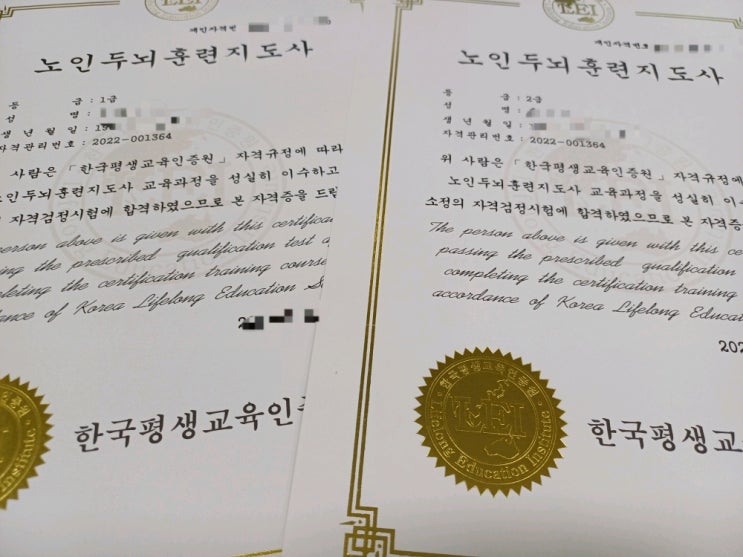 개인자격번
노인두뇌훈련지도사
등 급 : 1급
성 명 :
생 년 월 일 : 19
자격관리번호 : 2022-001364
사람은 「한국평생교육인증원」 자격규정에 따라
노인두뇌훈련지도사 교육과정을 성실히 이수하고
자격검정시험에 합격하였으므로 본 자격증을 드립
person above is given with this certifica
ing the prescribed qualification test a
pleting the certification training course
dance of Korea Lifelong Education
2
한국평생교육인증
LEI
개인자격번호
노인두뇌훈련지도사
등 급 : 2급
성 명 :
생 년 월 일 :
자격관리번호 : 2022-001364
위 사람은 「한국평생교육인증원」 자격규정에
노인두뇌훈련지도사 교육과정을 성실히 이수
소정의 자격검정시험에 합격하였으므로 본 자격증
The person above is given with this ce
passing the prescribed qualification
completing the certification training
accordance of Korea Lifelong Educa
202
한국평생교육인증원
LEI
Lifelong Education Institute
한국평생교